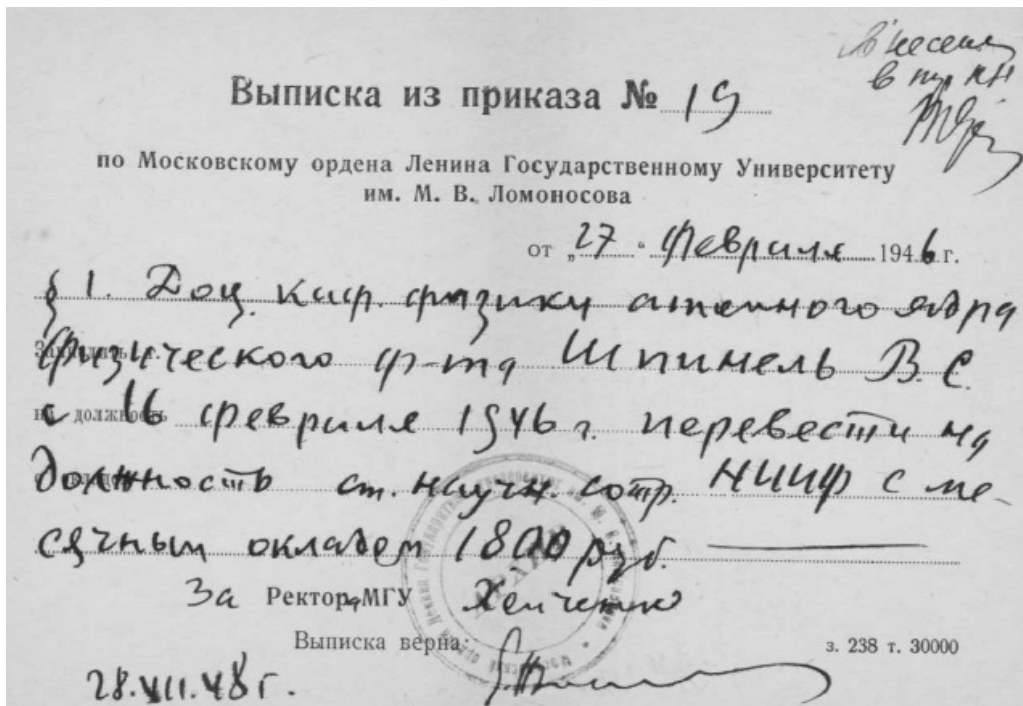 Внесено
в тр. кн.
Выписка из приказа № 19
по Московскому ордена Ленина Государственному Университету
им. М. В. Ломоносова
от „27 “ февраля 1946 г.
§ 1. Доц. каф. физики атомного ядра
физического ф-та Шпинель В. С.
на должность
с 16 февраля 1946 г. перевести на
должность ст. научн. сотр. НИИФ с ме-
сячным окладом 1800 руб.
За Ректор МГУ Хейченко
Выписка верна:
з. 238 т. 30000
28.VII.48 г.